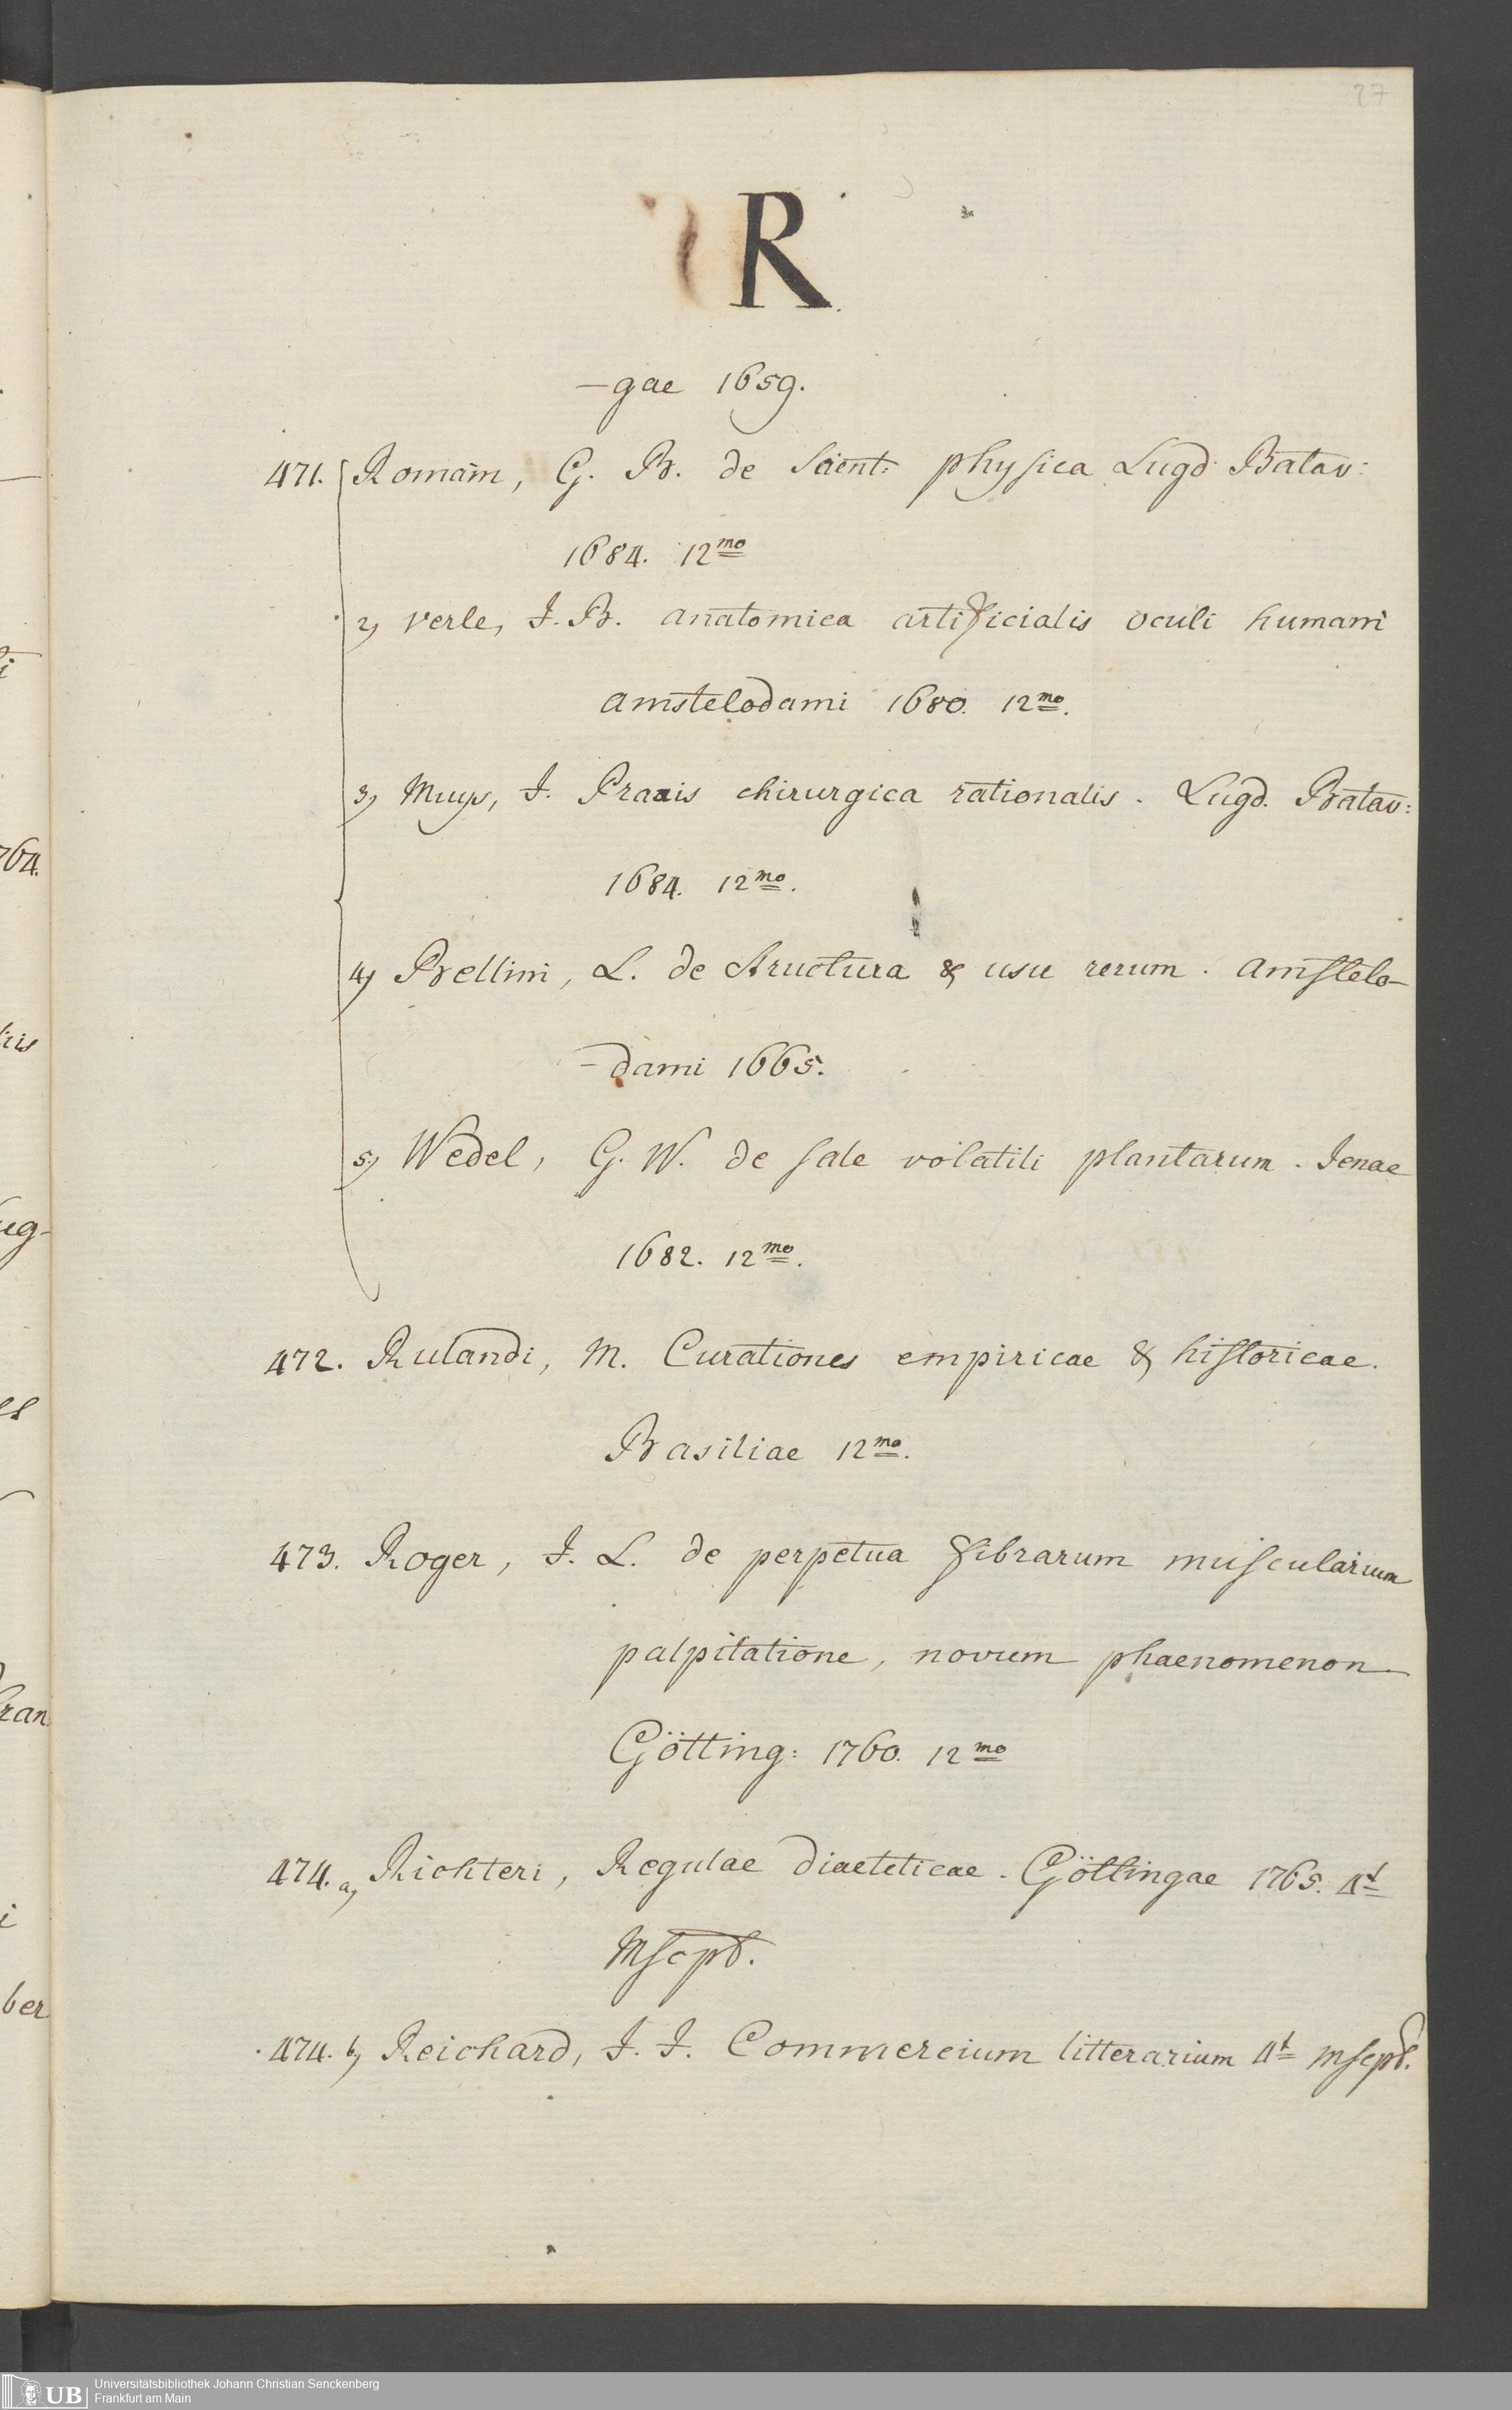 27
R.
-gae 1659.
471. Romani, G. B. de Scient: physica Lugd: Batav:
1684. 12mo
2) Verle, J. B. anatomica artificialis oculi humani
amstelodami 1680. 12mo.
3) Muys, J. Praxis chirurgica rationalis. Lugd. Batav:
1684. 12mo.
4) Bellini, L. de structura & usu rerum. amstelo-
-dami 1665.
5) Wedel, G. W. de sale volatili plantarum. Jenae
1682. 12mo.
472. Rulandi, M. Curationes empiricae & historicae.
Basiliae 12mo.
473. Roger, J. L. de perpetua fibrarum muscularium
palpitatione, novum phaenomenon
Götting: 1760. 12mo
474. a) Richteri, Regulae diaeteticae. Göttingae 1765. 4t
Mscpt.
474. b) Reichard, J. J. Commercium litterarium 4t mscpt.
764.
ris
ug-
ran
ber
UB
Universitätsbibliothek Johann Christian Senckenberg
Frankfurt am Main